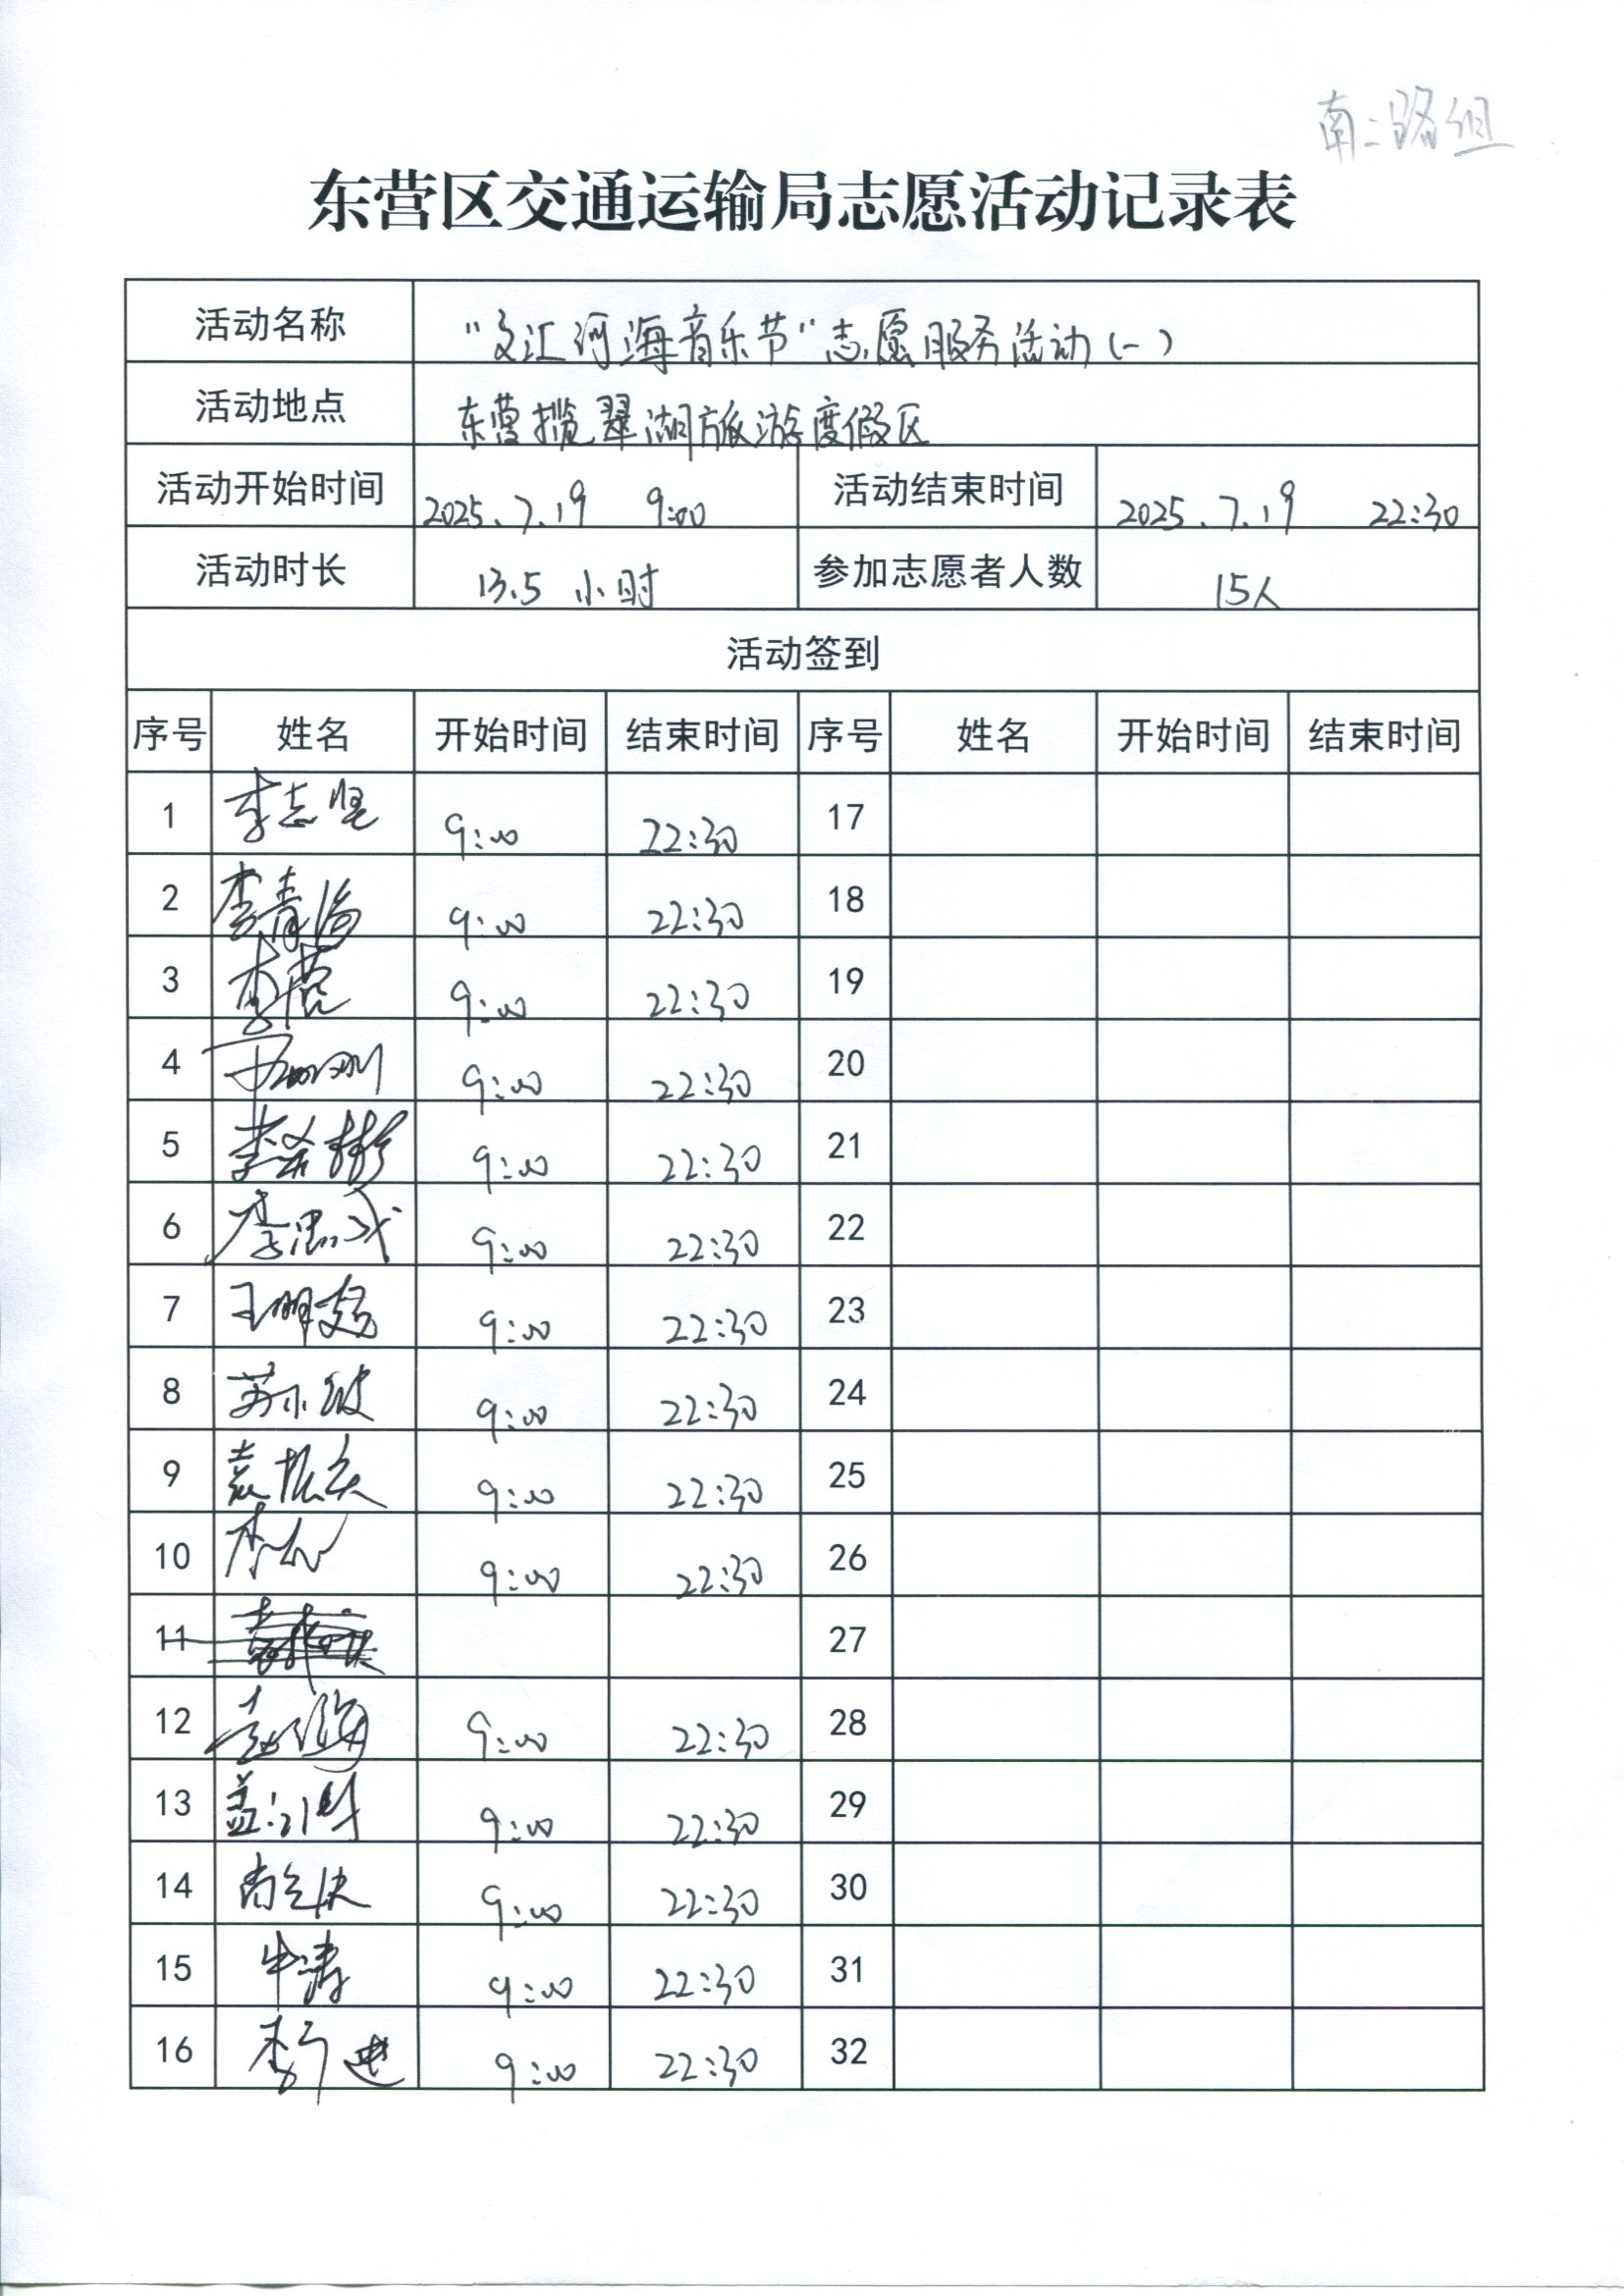 南二路组
东营区交通运输局志愿活动记录表
活动名称 "文汇河海音乐节"志愿服务活动(一)
活动地点 东营揽翠湖旅游度假区
活动开始时间 2025.7.19 9:00 活动结束时间 2025.7.19 22:30
活动时长 13.5 小时 参加志愿者人数 15人
活动签到
序号 姓名 开始时间 结束时间 序号 姓名 开始时间 结束时间
1 李志坚 9:00 22:30 17
2 李青海 9:00 22:30 18
3 李 9:00 22:30 19
4 9:00 22:30 20
5 李希彬 9:00 22:30 21
6 李思成 9:00 22:30 22
7 王明超 9:00 22:30 23
8 苏小波 9:00 22:30 24
9 袁振 9:00 22:30 25
10 李 9:00 22:30 26
11 27
12 9:00 22:30 28
13 盖 9:00 22:30 29
14 尚 9:00 22:30 30
15 牛涛 9:00 22:30 31
16 李 9:00 22:30 32